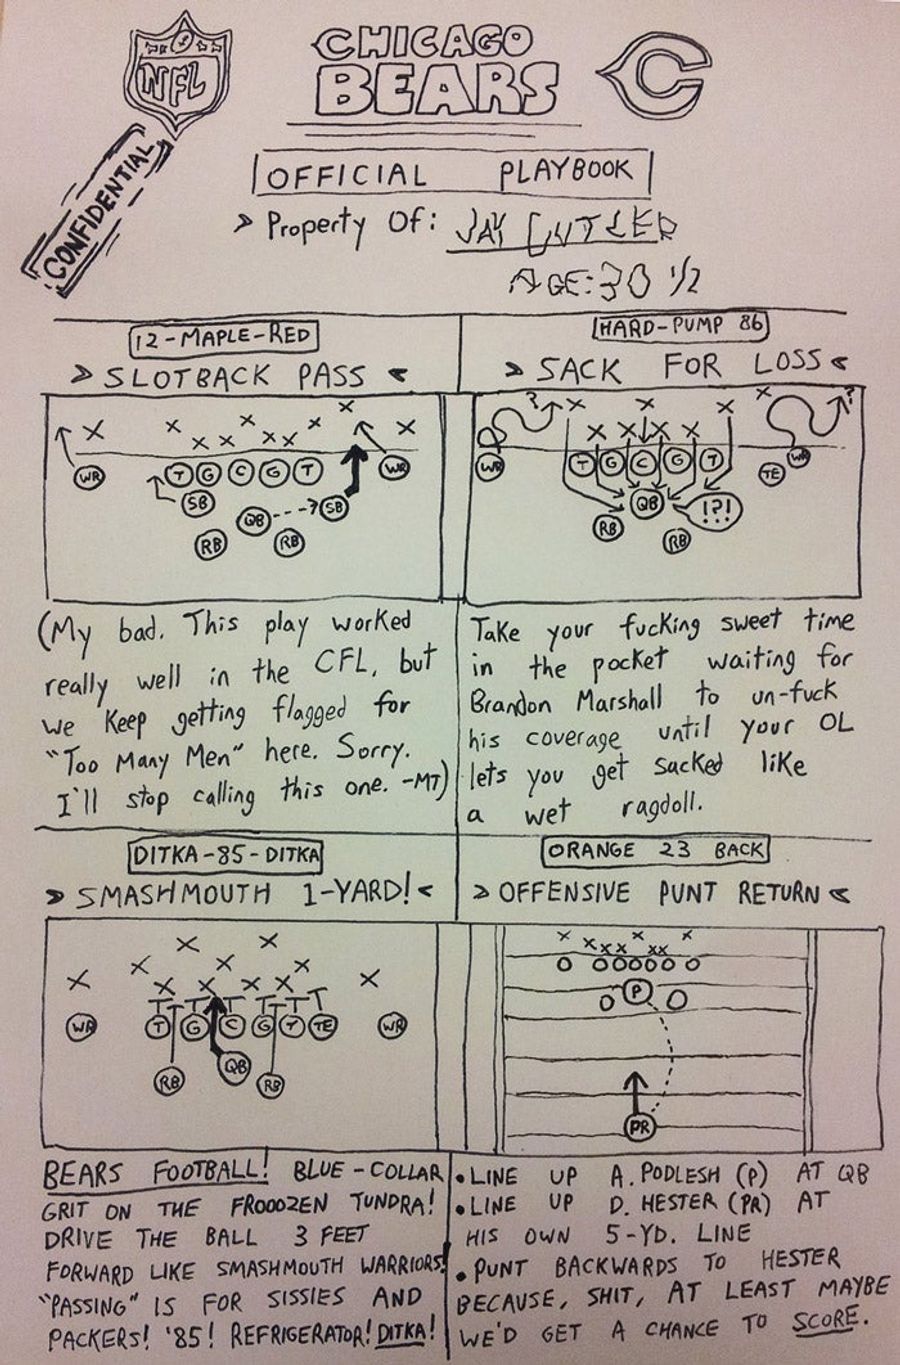 NFL
CHICAGO
BEARS
C
CONFIDENTIAL
OFFICIAL PLAYBOOK
> Property Of: JAY CUTLER
AGE: 30 1/2
12-MAPLE-RED
> SLOTBACK PASS <
X X X X X X X X X X X
WR T G C G T WR
SB QB SB
RB RB
(My bad. This play worked
really well in the CFL, but
we keep getting flagged for
"Too Many Men" here. Sorry.
I'll stop calling this one. -MT)
HARD-PUMP 86
> SACK FOR LOSS <
? X X X X ?
X X X X
WR T G C G T TE WR
QB !?!
RB RB
Take your fucking sweet time
in the pocket waiting for
Brandon Marshall to un-fuck
his coverage until your OL
lets you get sacked like
a wet ragdoll.
DITKA-85-DITKA
> SMASHMOUTH 1-YARD! <
X X
X X X X X
X X X X
WR T G C G T TE WR
RB QB RB
BEARS FOOTBALL! BLUE-COLLAR
GRIT ON THE FROOOZEN TUNDRA!
DRIVE THE BALL 3 FEET
FORWARD LIKE SMASHMOUTH WARRIORS!
"PASSING" IS FOR SISSIES AND
PACKERS! '85! REFRIGERATOR! DITKA!
ORANGE 23 BACK
> OFFENSIVE PUNT RETURN <
X X X X X X X X X
O O O O O O O O
O P O
PR
• LINE UP A. PODLESH (P) AT QB
• LINE UP D. HESTER (PR) AT
HIS OWN 5-YD. LINE
• PUNT BACKWARDS TO HESTER
BECAUSE, SHIT, AT LEAST MAYBE
WE'D GET A CHANCE TO SCORE.